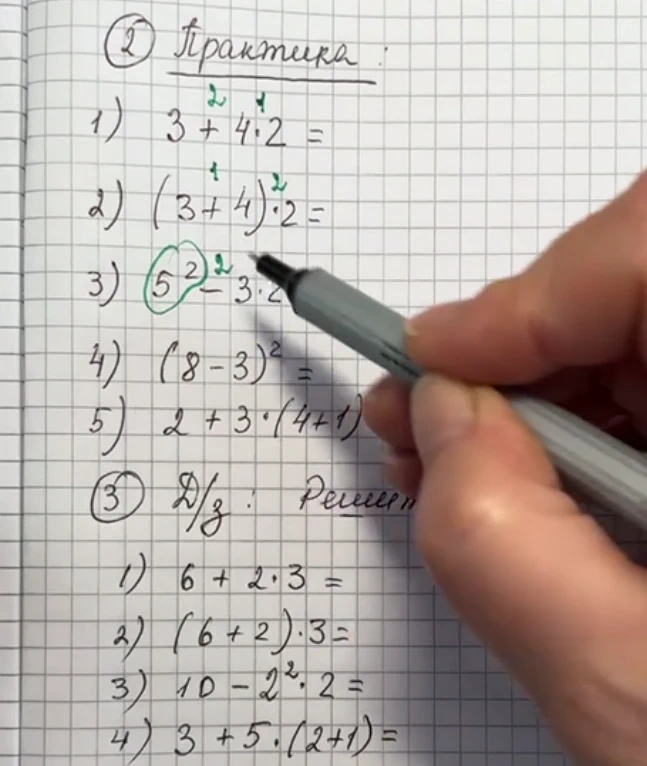 ② Практика:
2 1
1) 3 + 4·2 =
1 2
2) (3 + 4)·2 =
2
3) 5² - 3·2
4) (8 - 3)² =
5) 2 + 3·(4+1)
③ Д/з: Решит
1) 6 + 2·3 =
2) (6 + 2)·3 =
3) 10 - 2²·2 =
4) 3 + 5·(2+1) =